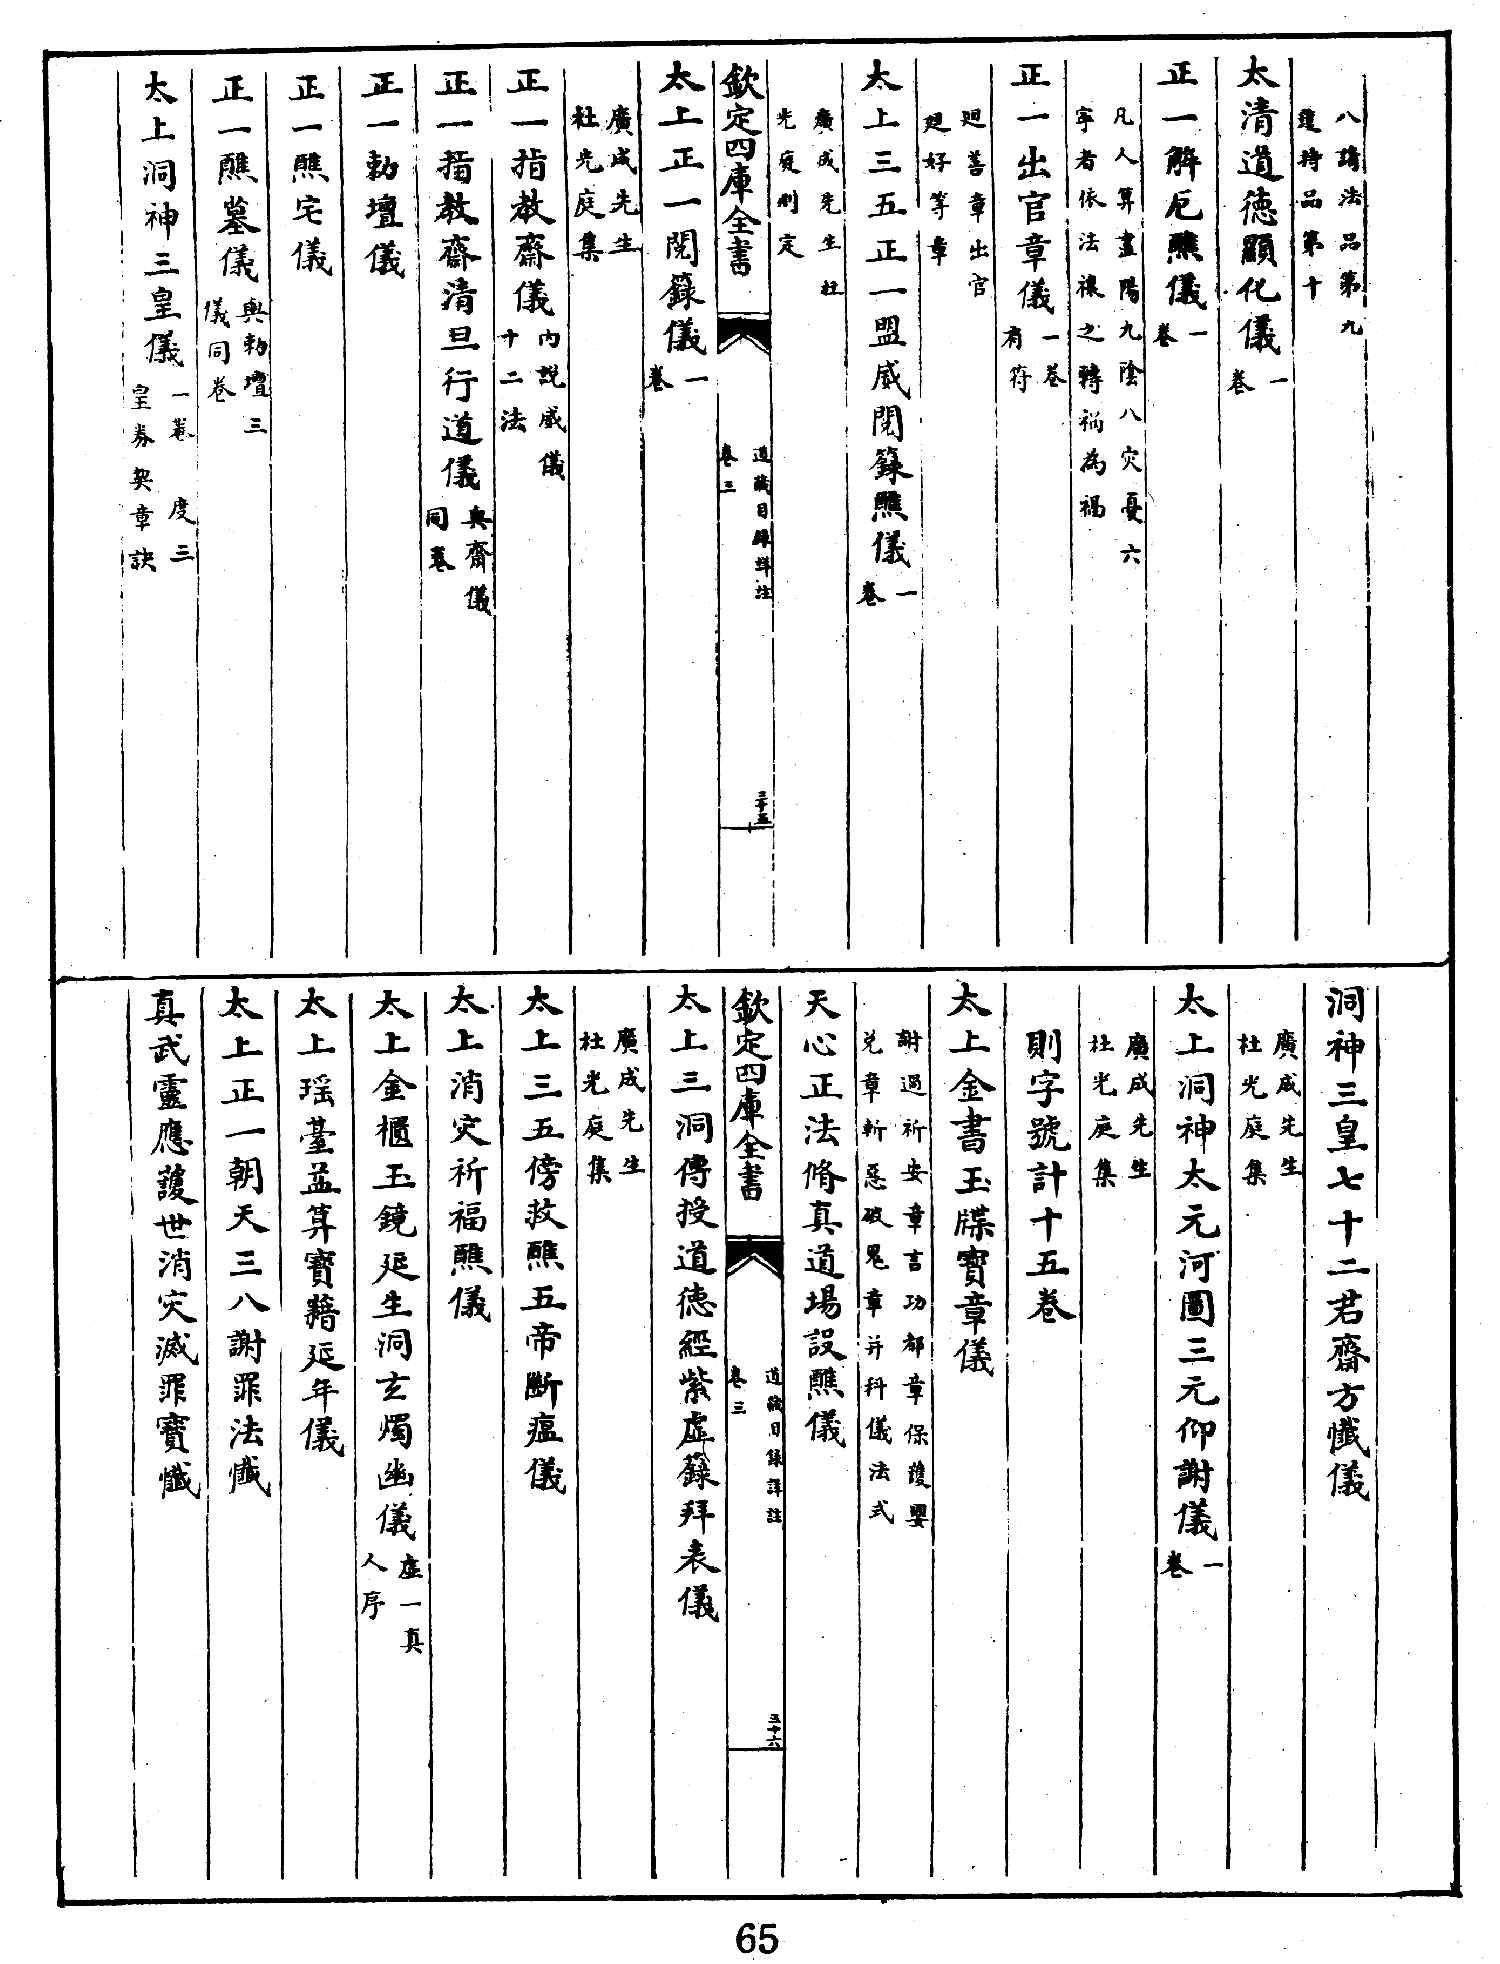 八請法品第九
護持品第十
太清道徳顯化儀一卷
正一解厄醮儀一卷
凡人算盡陽九陰八灾憂六
宰者依法禳之轉禍為福
正一出官章儀一卷有符
廻善章出官
廻好等章
太上三五正一盟威閱籙醮儀一卷
廣成先生杜
光庭刪定
欽定四庫全書
道藏目録詳註
卷三
三十五
太上正一閱籙儀一卷
廣成先生
杜光庭集
正一指教齋儀内説威儀十二法
正一指教齋清旦行道儀與齋儀同卷
正一勅壇儀
正一醮宅儀
正一醮墓儀與勅壇三儀同卷
太上洞神三皇儀一卷 度三皇券契章訣
洞神三皇七十二君齋方懺儀
廣成先生
杜光庭集
太上洞神太元河圖三元仰謝儀一卷
廣成先生
杜光庭集
則字號計十五卷
太上金書玉牒寶章儀
謝過祈安章言功都章保護嬰
兒章斬惡破鬼章并科儀法式
天心正法脩真道場設醮儀
欽定四庫全書
道藏目録詳註
卷三
三十六
太上三洞傳授道徳經紫虛籙拜表儀
廣成先生
杜光庭集
太上三五傍救醮五帝斷瘟儀
太上消灾祈福醮儀
太上金櫃玉鏡延生洞玄燭幽儀虛一真人序
太上瑶臺益算寶籍延年儀
太上正一朝天三八謝罪法懺
真武靈應護世消灾滅罪寶懺
65